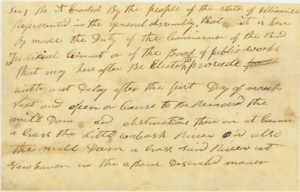 Sec 1 Be it Enacted By the people of the state of Illinois
Represented in the general assembly that it is here
By made the Duty of the Commissioner of the third
Judicial Circuit or of the Board of public works
that may here after Be Elected to provide
with out Delay after the first Day of march
Next and open or Cause to Be Removed the
mill Dam and obstructions there on at Carmi
a Cross the little wabash River on also
the mill Dam a Cross said River at
New haven in the a Bove Described maner